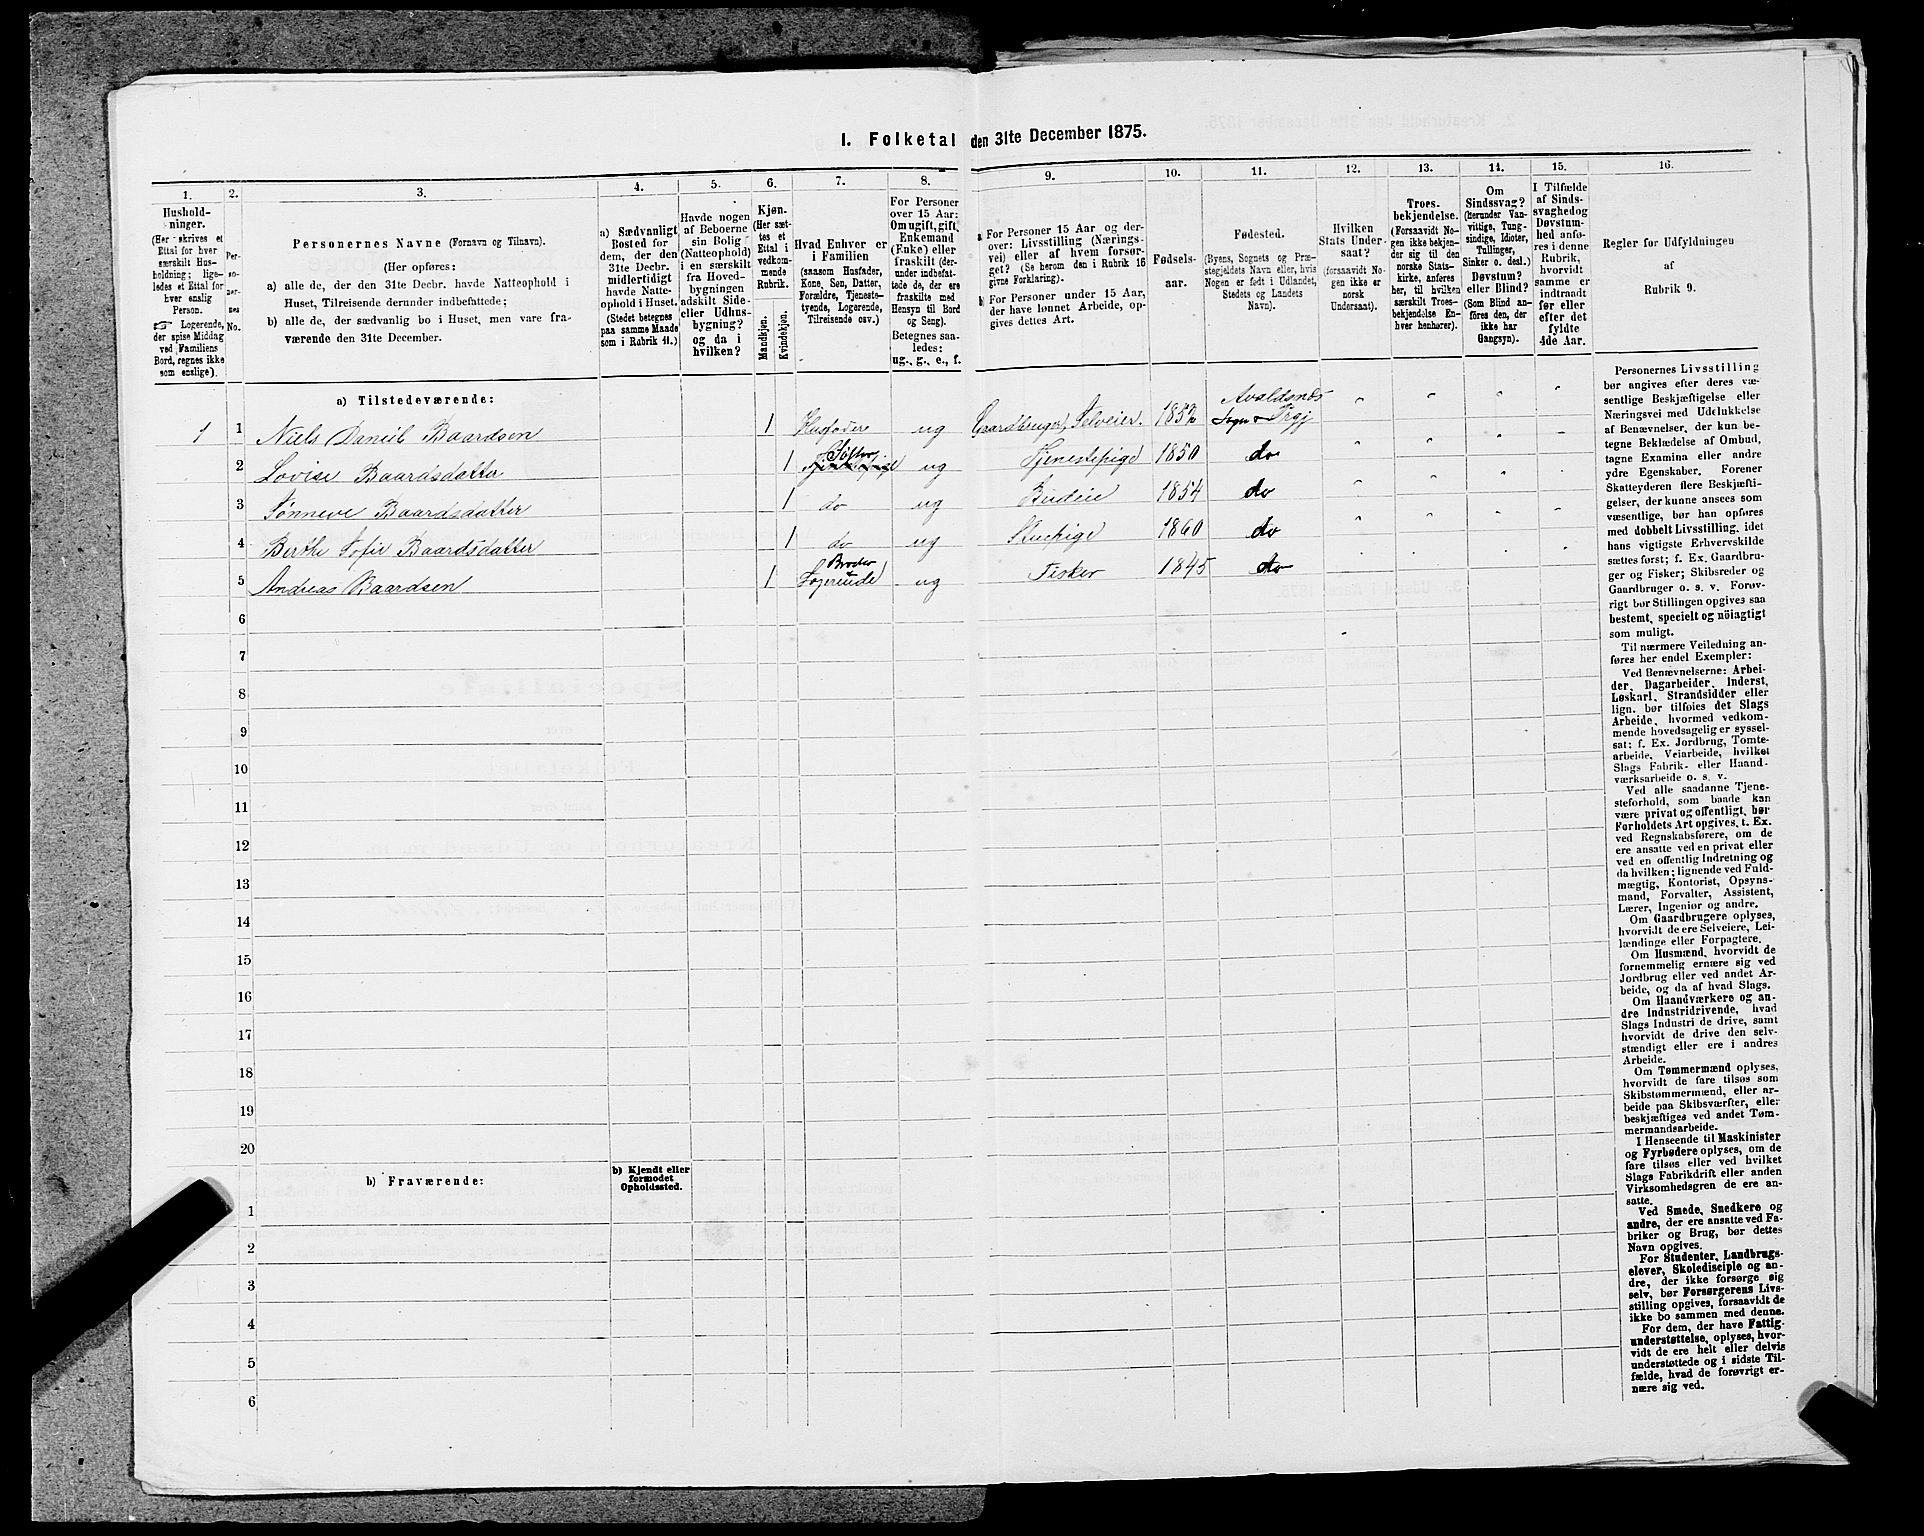 1. Folketal den 31te December 1875.
1.
2.
3.
4.
5.
6.
7.
8.
9.
10.
11.
12.
13.
14.
15.
16.
Hushold-
ninger.
(Her skrives et
Ettal for hver
særskilt Hus-
holdning; lige-
ledes et Ettal for
hver enslig
Person.
☞ Logerende,
der spise Middag
ved Familiens
Bord, regnes ikke
som enslige).
Per-
so-
ner-
nes
No.
Personernes Navne (Fornavn og Tilnavn).
(Her opføres:
a) alle de, der den 31te Decbr. havde Natteophold i
Huset, Tilreisende derunder indbefattede;
b) alle de, der sædvanlig bo i Huset, men vare fra-
værende den 31te December.
a) Sædvanligt
Bosted for
dem, der den
31te Decbr.
midlertidigt
havde Natte-
ophold i Huset.
(Stedet betegnes
paa samme Maade
som i Rubrik 11.)
Havde nogen
af Beboerne
sin Bolig
(Natteophold)
i en særskilt
fra Hoved-
bygningen
adskilt Side-
eller Udhus-
bygning?
og da i
hvilken?
Kjøn.
(Her sæt-
tes et
Ettal i
vedkom-
mende
Rubrik.
Mandkjøn.
Kvindekjøn.
Hvad Enhver er
i Familien
(saasom Husfader,
Kone, Søn, Datter,
Forældre, Tjeneste-
tyende, Logerende,
Tilreisende osv.)
For Personer
over 15 Aar:
Om ugift, gift,
Enkemand
(Enke) eller
fraskilt (der-
under indbefat-
tede de, der ere
fraskilte med
Hensyn til Bord
og Seng).
Betegnes saa-
ledes:
ug., g., e., f.
a. For Personer 15 Aar og der-
over: Livsstilling (Nærings-
vei) eller af hvem forsør-
get? (Se herom den i Rubrik 16
givne Forklaring).
b. For Personer under 15 Aar,
der have lønnet Arbeide, op-
gives dettes Art.
Fødsels-
aar.
Fødested.
(Byens, Sognets og Præ-
stegjeldets Navn eller, hvis
Nogen er født i Udlandet,
Stedets og Landets
Navn).
Hvilken
Stats Under-
saat?
(forsaavidt No-
gen ikke er
norsk
Undersaat).
Troes-
bekjendelse.
(Forsaavidt No-
gen ikke bekjen-
der sig til den
norske Stats-
kirke, anføres
her, til hvilken
særskilt Troes-
bekjendelse En-
hver henhører).
Om
Sindssvag?
(Herunder Van-
vittige, Tung-
sindige, Idioter,
Tullinger,
Sinker o. desl.)
Døvstum?
eller Blind?
(Som Blind an-
føres den, der
ikke har
Gangsyn).
I Tilfælde
af Sinds-
svaghed og
Døvstum-
hed anfø-
res i denne
Rubrik,
hvorvidt
samme er
indtraadt
før eller
efter det
fyldte
4de Aar.
Regler for Udfyldningen
af
Rubrik 9.
a) Tilstedeværende:
1 1 Niels Daniel Baardsen 1 Husfader ug Gaardbruger, Selveier. 1852 Avaldsnes Sogn & Prgj " " " "
2 Lovise Baardsdatter 1 Søster ug Tjenestepige 1850 do " " " "
3 Sønneve Baardsdatter 1 do ug Budeie 1854 do " " " "
4 Berthe Sofie Baardsdatter 1 do ug Stuepige 1860 do " " " "
5 Andreas Baardsen 1 Broder Logerende ug Fisker 1845 do " " " "
6
7
8
9
10
11
12
13
14
15
16
17
18
19
20
b) Fraværende:
b) Kjendt eller
formodet
Opholdssted.
1
2
3
4
5
6
Personernes Livsstilling
bør angives efter deres væ-
sentlige Beskjæftigelse eller
Næringsvei med Udelukkelse
af Benævnelser, der kun be-
tegne Beklædelse af Ombud,
tagne Examina eller andre
ydre Egenskaber. Forener
Skatteyderen flere Beskjæfti-
gelser, der kunne ansees som
væsentlige, bør han opføres
med dobbelt Livsstilling, idet
hans vigtigste Erhvervskilde
sættes først; f. Ex. Gaardbru-
ger og Fisker; Skibsreder og
Gaardbruger o. s. v. Forøv-
rigt bør Stillingen opgives saa
bestemt, specielt og nöiagtigt
som muligt.
Til nærmere Veiledning an-
føres her endel Exempler:
Ved Benævnelserne: Arbei-
der, Dagarbeider, Inderst,
Løskarl, Strandsidder eller
lign. bør tilføies det Slags
Arbeide, hvormed vedkom-
mende hovedsagelig er syssel-
sat: f. Ex. Jordbrug, Tomte-
arbeide, Veiarbeide, hvilket
Slags Fabrik- eller Haand-
værksarbeide o. s. v.
Ved alle saadanne Tjene-
steforhold, som baade kan
være privat og offentligt, bør
Forholdets Art opgives, t. Ex.
ved Regnskabsførere, om de
ere ansatte ved en privat eller
ved en offentlig Indretning og
da hvilken; lignende ved Fuld-
mægtig, Kontorist, Opsyns-
mand, Forvalter, Assistent,
Lærer, Ingeniør og andre.
Om Gaardbrugere oplyses,
hvorvidt de ere Selveiere, Lei-
lændinge eller Forpagtere.
Om Husmænd, hvorvidt de
fornemmelig ernære sig ved
Jordbrug eller ved andet Ar-
beide, og da af hvad Slags.
Om Haandværkere og an-
dre Industridrivende, hvad
Slags Industri de drive, samt
hvorvidt de drive den selv-
stændigt eller ere i andres
Arbeide.
Om Tømmermænd oplyses,
hvorvidt de fare tilsøs som
Skibstømmermænd, eller ar-
beide paa Skibsværfter, eller
beskjæftiges ved andet Tøm-
mermandsarbeide.
I Henseende til Maskinister
og Fyrbødere oplyses, om de
fare tilsøs eller ved hvilket
Slags Fabrikdrift eller anden
Virksomhedsgren de ere an-
satte.
Ved Smede, Snedkere og
andre, der ere ansatte ved Fa-
briker og Brug, bør dettes
Navn opgives.
For Studenter, Landbrugs-
elever, Skoledisciple og an-
dre, der ikke forsørge sig
selv, bør Forsørgerens Livs-
stilling opgives, forsaavidt de
ikke bo sammen med denne.
For dem, der have Fattig-
understøttelse, oplyses, hvor-
vidt de ere helt eller delvis
understøttede og i sidste Til-
fælde, hvad de forøvrigt er-
nære sig ved.